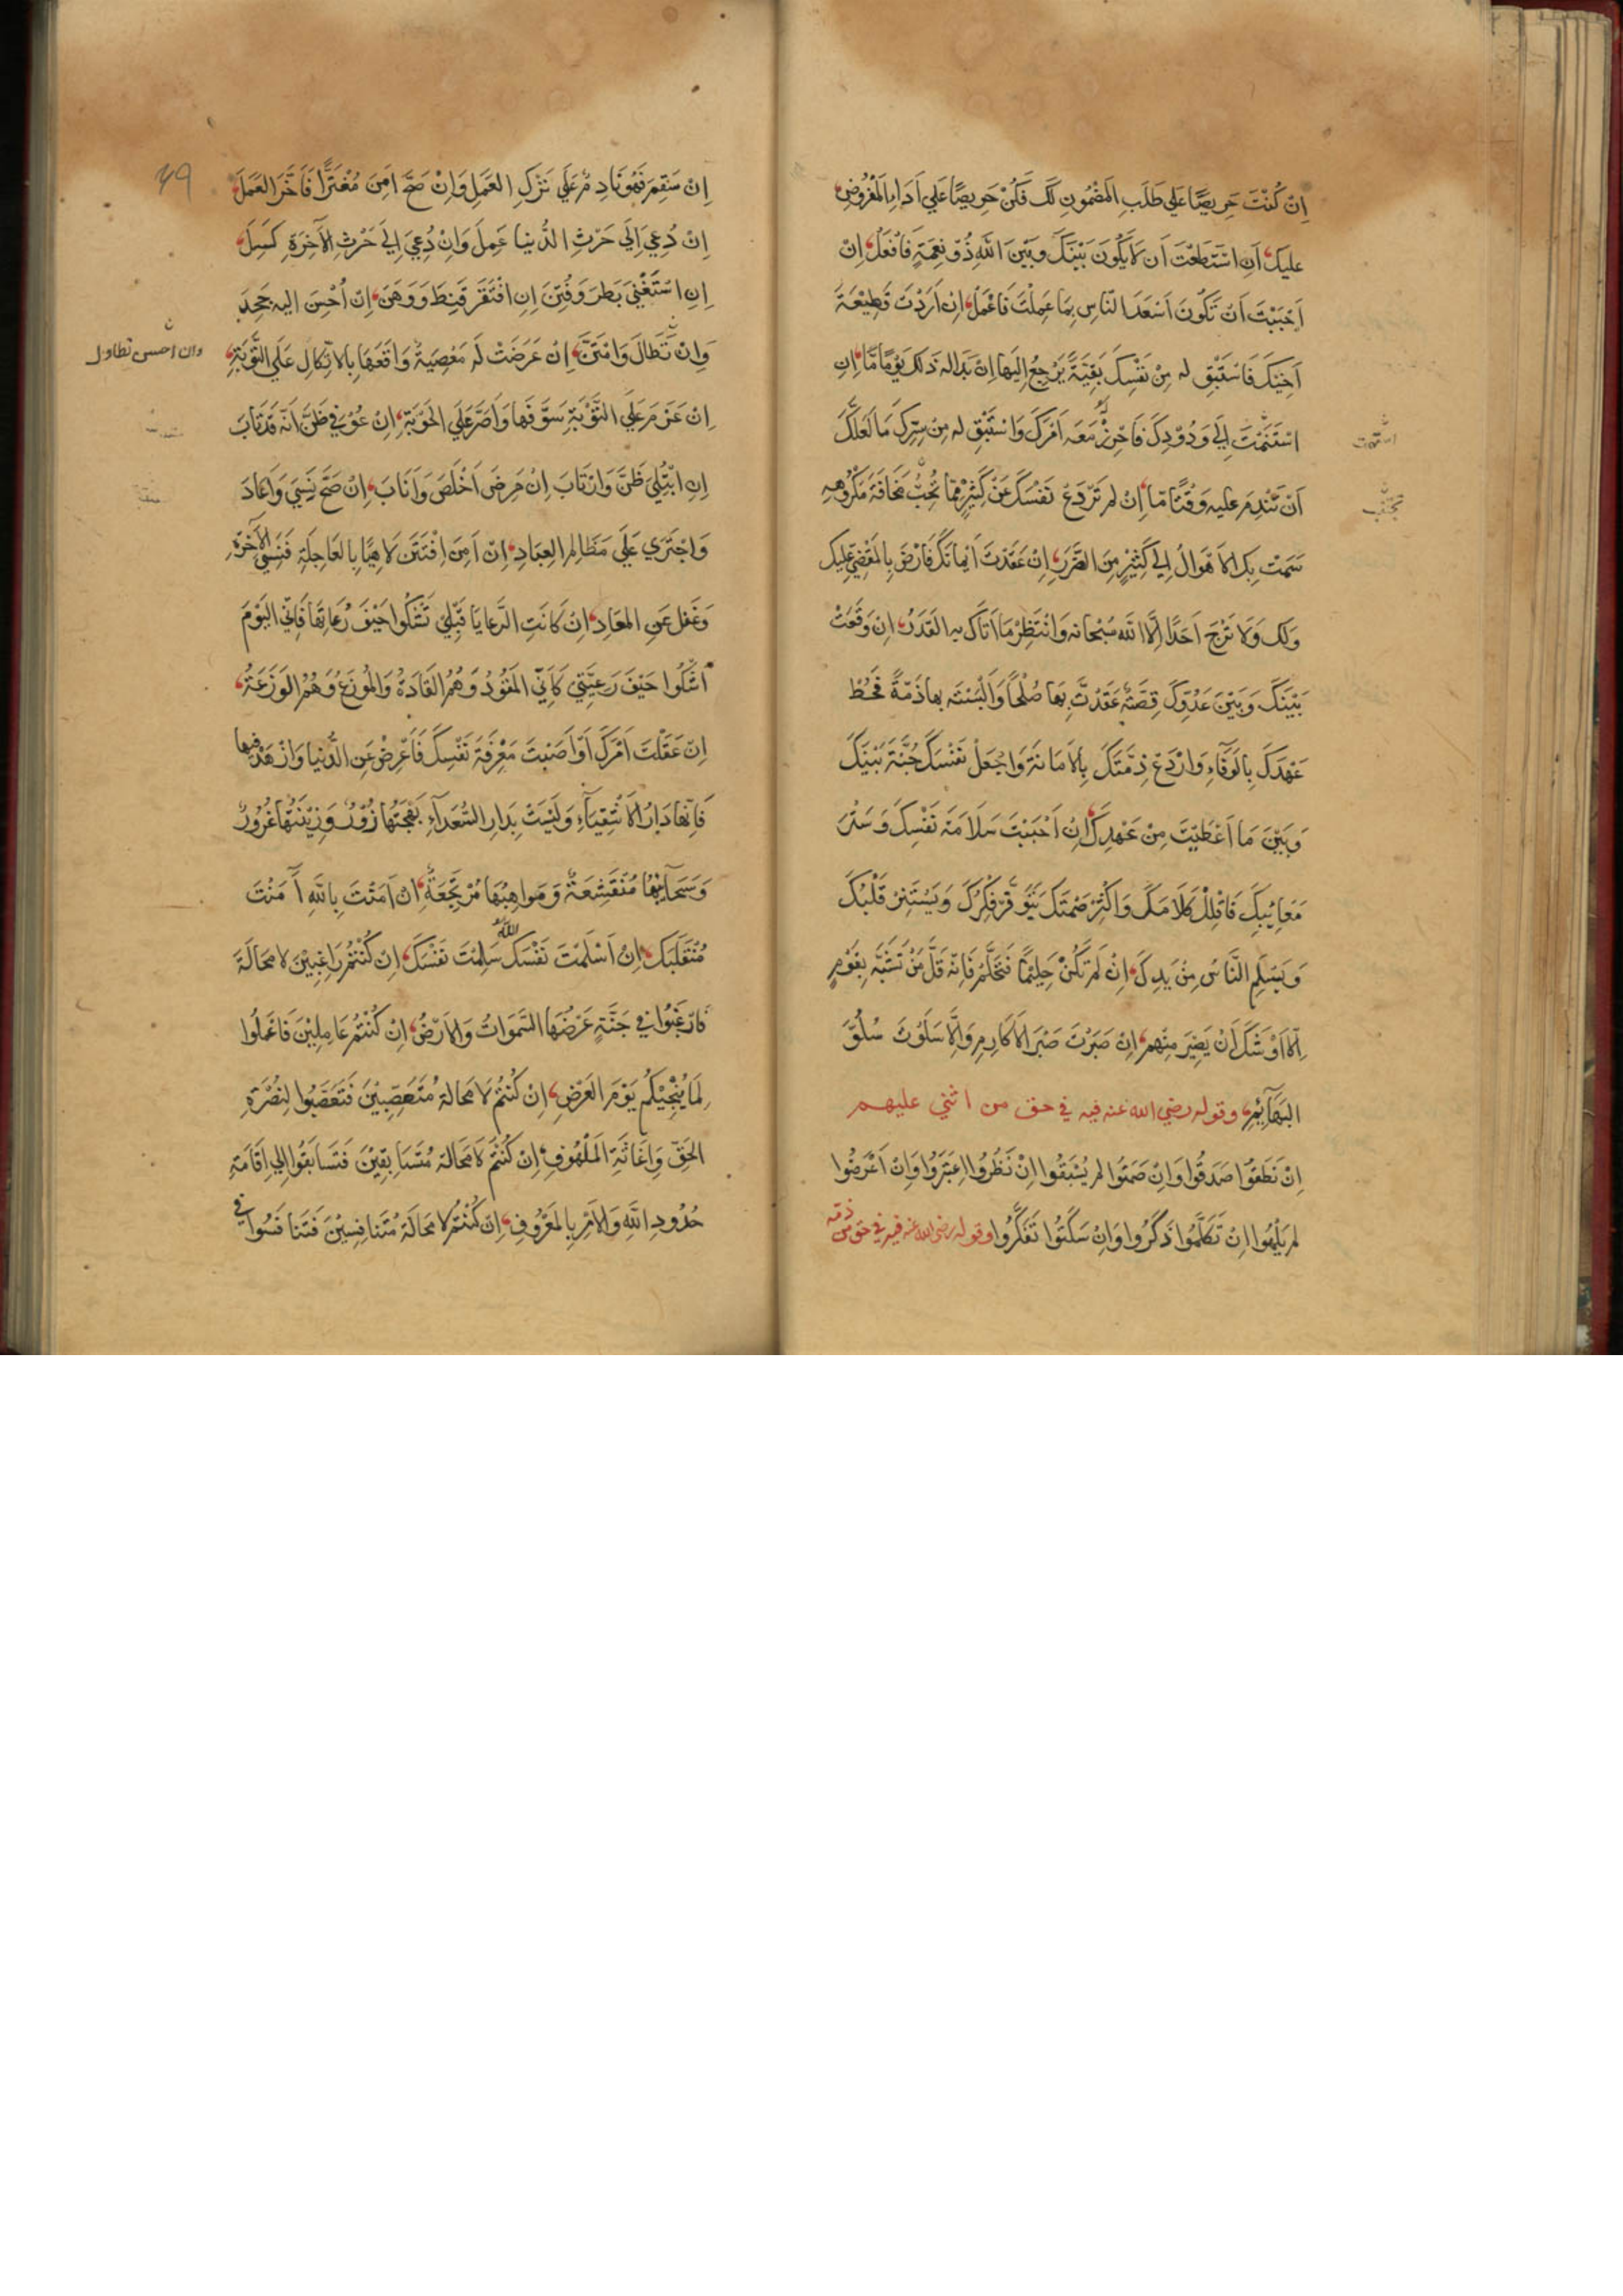 اِنْ كُنْتَ حَرِيصًا عَلي طَلَبِ المَضْمُونِ لَكَ فَكُنْ حَرِيصًا عَلي اَدَاءِ المَفْرُوضِ
عليكَ اِنِ اسْتَطَعْتَ اَن لَا يَكُونَ بَيْنَكَ وبَيْنَ اللهِ ذُوْ نِعْمَةٍ فَافْعَلْ اِنْ
اَحْبَبْتَ اَنْ تَكُونَ اَسْعَدَ النَّاسِ بِمَا عَمِلْتَ فَاعْمَلْ اِنْ اَرَدْتَ قَطِيْعَةَ
اَخِيْكَ فَاسْتَبْقِ له مِنْ نَفْسِكَ بَقِيَّةً يَرْجِعُ اِلَيْهَا اِنْ بَدَا له ذلك يَوْمًا مَّا اِنِ
اسْتَنَمْتَ اِلي وَدُوْدِكَ فَاحْرِزْ مَعَه اَمْرَكَ وَاسْتَبْقِ له مِن سِرِّكَ مَا لَعَلَّكَ
استنمت
اَنْ تَنْدِمَ عليه وَقْتًا مّا اِنْ لم تَرْدَعْ نَفْسَكَ عَنْ كَثِيْرٍ مِمَّا تُحِبُّ مَخَافَةَ مَكْرُوهِهِ
سَمَتْ بِكَ الاَهْوَالُ اِلي كَثِيْرٍ مِنَ الضَّرَرِ اِنْ عَقَدْتَ اِيْمَانَكَ فَارْضَ بِالمَقْضِيِّ عليكَ
وَلَكَ وَلا تَرْجُ اَحَدًا اِلَّا اللهَ سُبْحَانه وَانْتَظِرْ مَا اَتَاكَ به القَدَرُ اِنْ وَقَعَتْ
بَيْنَكَ وَبَيْنَ عَدُوِّكَ قِصَّةٌ عَقَدْتَ بِهَا صُلْحًا وَاَلْبَسْتَه بها ذِمَّةً فَحُطْ
عَهْدَكَ بِالوَفَاءِ وَارْدَعْ ذِمَّتَكَ بِالاَمَانَةِ وَاجْعَلْ نَفْسَكَ جُنَّةً بَيْنَكَ
وَبَيْنَ مَا اَعْطَيْتَ مِنْ عَهْدِكَ اِنْ اَحْبَبْتَ سَلَامَةَ نَفْسِكَ وَسَتْرَ
مَعَايِبِكَ فَاقْلِلْ كَلَامَكَ وَاَكْثِرْ صَمْتَكَ يَتَوَفَّرْ فِكْرُكَ وَيَسْتَنِرْ قَلْبُكَ
وَيَسْلَمِ النَّاسُ مِنْ يَدِكَ اِنْ لَمْ تَكُنْ حَلِيْمًا فَتَحَلَّمْ فَاِنّه قَلَّ مَنْ تَشَبَّهَ بِقَوْمٍ
اِلّا اَوْشَكَ اَنْ يَصِيْرَ مِنْهم اِنْ صَبَرْتَ صَبْرَ الاَكَارِمِ وَاِلَّا سَلَوْتَ سُلُوَّ
البَهَآئِمِ وقوله رضي الله عنه فيه في حق من اثني عليهم
اِنْ نَطَقُوا صَدَقُوا وَاِنْ صَمَتُوا لم يُسْبَقُوا اِنْ نَظَرُوا اعْتَبَرُوا وَاِنْ اَعْرَضُوا
لم يَلْهُوا اِنْ تَكَلَّمُوا ذَكَرُوا وَاِنْ سَكَتُوا تَفَكَّرُوا وقوله رضي الله عنه فيه في حق من ذمّه
٤٩
اِنْ سَقِمَ فَهُوَ نَادِمٌ عَلَي تَرْكِ العَمَلِ وَاِنْ صَحَّ اَمِنَ مُغْتَرًّا فَاَخَّرَ العَمَلَ
اِنْ دُعِيَ اِلَي حَرْثِ الدُّنيا عَمِلَ وَاِنْ دُعِيَ اِلي حَرْثِ الآخِرَةِ كَسِلَ
اِنِ اسْتَغْنَي بَطَرَ وَفُتِنَ اِنِ افْتَقَرَ قَنِطَ وَوَهَنَ اِنْ اُحْسِنَ اليه جَحَدَ
وان احسن تطاول
وَاِنْ تَطَالَ وَامْتَنَّ اِنْ عَرَضَتْ لَه مَعْصِيَةٌ وَاقَعَهَا بِالاتِّكَالِ عَلَي التَّوْبَةِ
اِنْ عَزَمَ عَلَي التَّوْبَةِ سَوَّفَهَا وَاَصَرَّ عَلَي الحَوْبَةِ اِنْ عُوْفِيَ ظَنَّ اَنّه قَدْ تَابَ
اِنِ ابْتُلِيَ ظَنَّ وَارْتَابَ اِنْ مَرِضَ اَخْلَصَ وَاَنَابَ اِنْ صَحَّ نَسِيَ وَاَعَادَ
وَاجْتَرَي عَلَي مَظَالِمِ العِبَادِ اِنْ اَمِنَ افْتَتَنَ لَاهِيًا بِالعَاجِلَةِ فَنَسِيَ الآخِرَةَ
وَغَفَلَ عَنِ المَعَادِ اِنْ كَانَتِ الرَّعَايَا قَبْلِي تَشْكُوا حَيْفَ رُعَاتِهَا فَاِنِّي اليَوْمَ
اَشْكُوا حَيْفَ رَعِيَّتِي كَاَنِّي المَقُوْدُ وَهُمُ القَادَةُ وَالمُوْزَعُ وَهُمُ الوَزَعَةُ
اِنْ عَقَلْتَ اَمْرَكَ اَوْ اَصَبْتَ مَعْرِفَةَ نَفْسِكَ فَاَعْرِضْ عَنِ الدُّنيا وَازْهَدْ فيها
فَاِنّهَا دَارُ الاَشْقِيَاءِ وَلَيْسَتْ بِدَارِ السُّعَدَآءِ بَهْجَتُهَا زُوْرٌ وَزِيْنَتُهَا غُرُوْرٌ
وَسَحَآئِبُهَا مُنْقَشِعَةٌ وَمَواهِبُهَا مُرْتَجَعَةٌ اِنْ اٰمَنْتَ بِاللهِ اَمِنْتَ
مُنْقَلَبَكَ اِنْ اَسْلَمْتَ نَفْسَكَ لله سَلِمْتَ نَفْسَكَ اِنْ كُنْتُمْ رَاغِبِيْنَ لا مَحَالَةَ
فَارْغَبُوا في جَنَّةٍ عَرْضُهَا السَّموَاتُ وَالاَرْضُ اِنْ كُنْتُمْ عَامِلِيْنَ فَاعْمَلُوا
لِمَا يُنْجِيْكُم يَوْمَ العَرْضِ اِنْ كُنتُمْ لا مَحالة مُتَعَصِّبِيْنَ فَتَعَصَّبُوا لِنُصْرَةِ
الحَقِّ وَاِغَاثَةِ المَلْهُوفِ اِنْ كُنْتُمْ لا مَحَالة مُتَسَابِقِيْنَ فَتَسَابَقُوا اِلي اِقَامَةِ
حُدُودِ اللهِ وَالاَمْرِ بِالمَعْرُوفِ اِنْ كُنْتُمْ لا مَحَالَةَ مُتَنَافِسِيْنَ فَتَنافَسُوا في